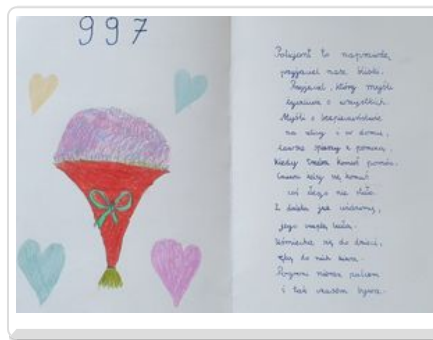 997
Policjant to naprawdę
przyjaciel nasz bliski.
Przyjaciel, który myśli
życzliwie o wszystkich.
Myśli o bezpieczeństwie
na ulicy i w domu,
zawsze spieszy z pomocą,
kiedy trzeba komuś pomóc.
żeby się komuś
coś złego nie stało.
Z daleka już widzimy,
jego czapkę białą.
Uśmiecha się do dzieci,
ręką do nich kiwa.
Pogrozi nieraz palcem
i tak czasem bywa.